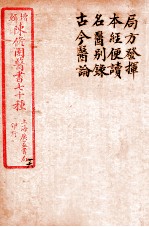 局方發揮
本經便讀
名醫別錄
古今醫論
增輯
陳修園醫書七十種
上海
印行